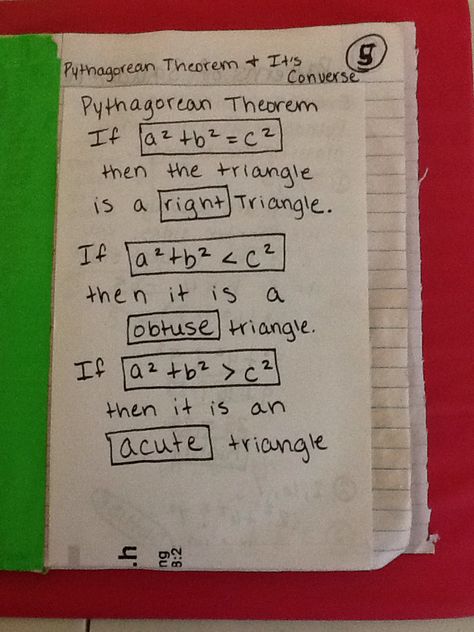 Pythagorean Theorem & It's
Converse
g
Pythagorean Theorem
If a² + b² = c²
then the triangle
is a right Triangle.
If a² + b² < c²
then it is a
obtuse triangle.
If a² + b² > c²
then it is an
acute triangle
.h
ng
8:2